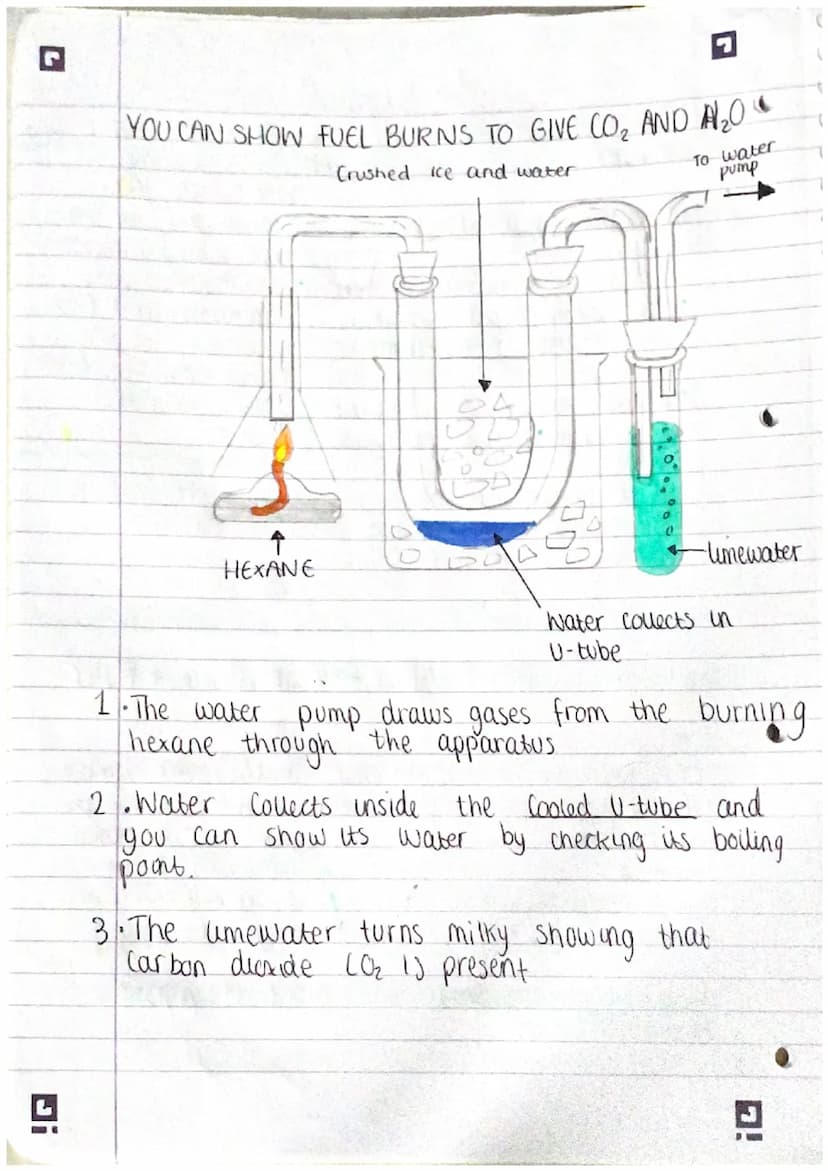 YOU CAN SHOW FUEL BURNS TO GIVE CO₂ AND H₂O
Crushed ice and water
To water
pump
HEXANE
limewater
Water collects in
U-tube
1. The water pump draws gases from the burning
hexane through the apparatus
2. Water collects inside the cooled U-tube and
you can show its water by checking its boiling
point.
3. The limewater turns milky showing that
carbon dioxide CO₂ is present